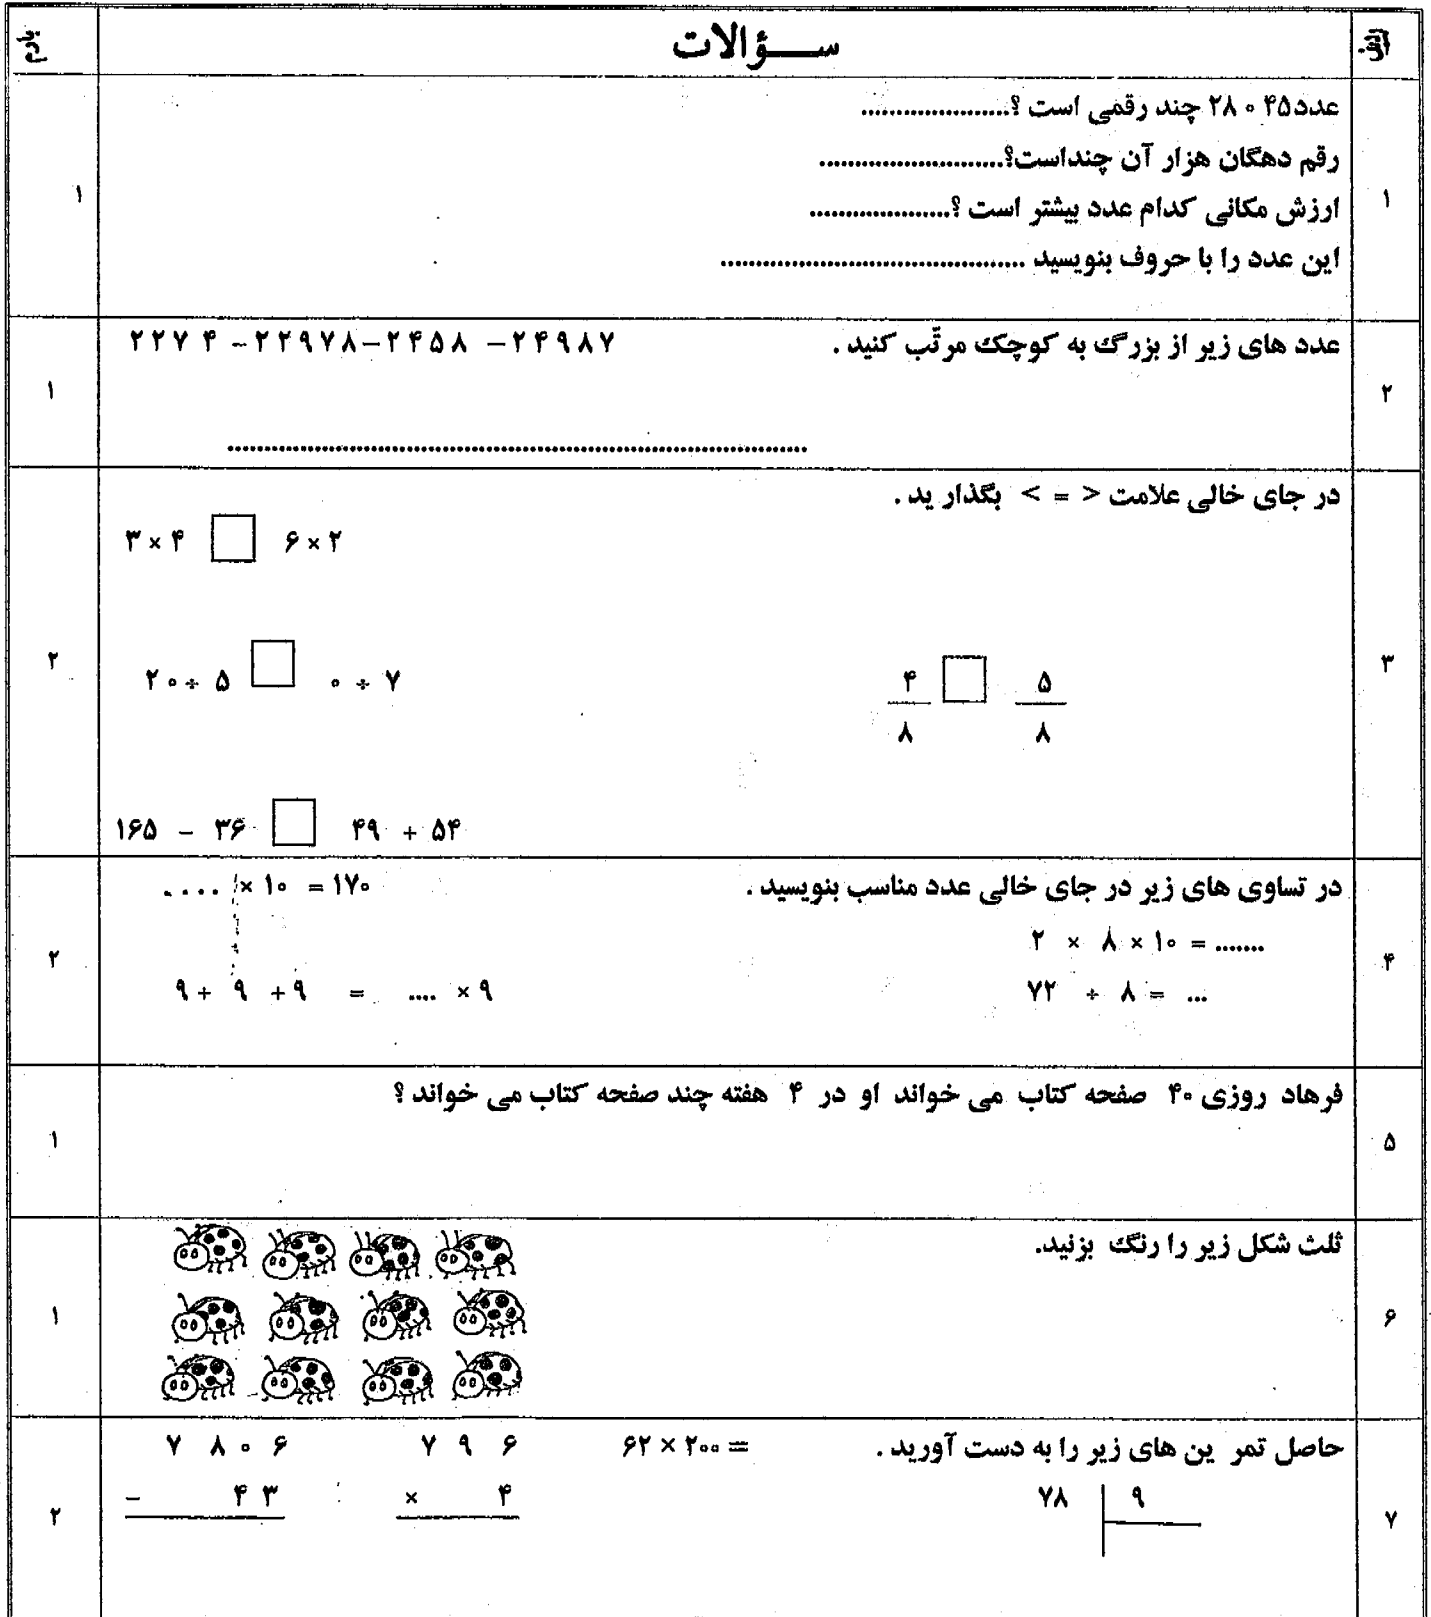 ردیف سـؤالات بارم
۱
عدد۲۸۰۴۵ چند رقمی است ؟.....................
رقم دهگان هزار آن چنداست؟..........................
ارزش مکانی کدام عدد بیشتر است ؟....................
این عدد را با حروف بنویسید ..........................................
۱
۲
عدد های زیر از بزرگ به کوچک مرتّب کنید . ۲۲۷۴ -۲۲۹۷۸-۲۴۵۸ -۲۴۹۸۷
................................................................................
۱
۳
در جای خالی علامت < = > بگذار ید .
۳ × ۴ □ ۶ × ۲
۲۰ ÷ ۵ □ ۰ ÷ ۷
۴/۸ □ ۵/۸
۱۶۵ - ۳۶ □ ۴۹ + ۵۴
۲
۴
در تساوی های زیر در جای خالی عدد مناسب بنویسید .
.... × ۱۰ = ۱۷۰
۲ × ۸ × ۱۰ = .......
۹ + ۹ + ۹ = .... × ۹
۷۲ ÷ ۸ = ...
۲
۵
فرهاد روزی ۴۰ صفحه کتاب می خواند او در ۴ هفته چند صفحه کتاب می خواند ؟
۱
۶
ثلث شکل زیر را رنگ بزنید.
۱
۷
حاصل تمر ین های زیر را به دست آورید .
۶۲ × ۲۰۰ =
۷ ۹ ۶
× ۴
۷ ۸ ۰ ۶
- ۴ ۳
۷۸ | ۹
۲